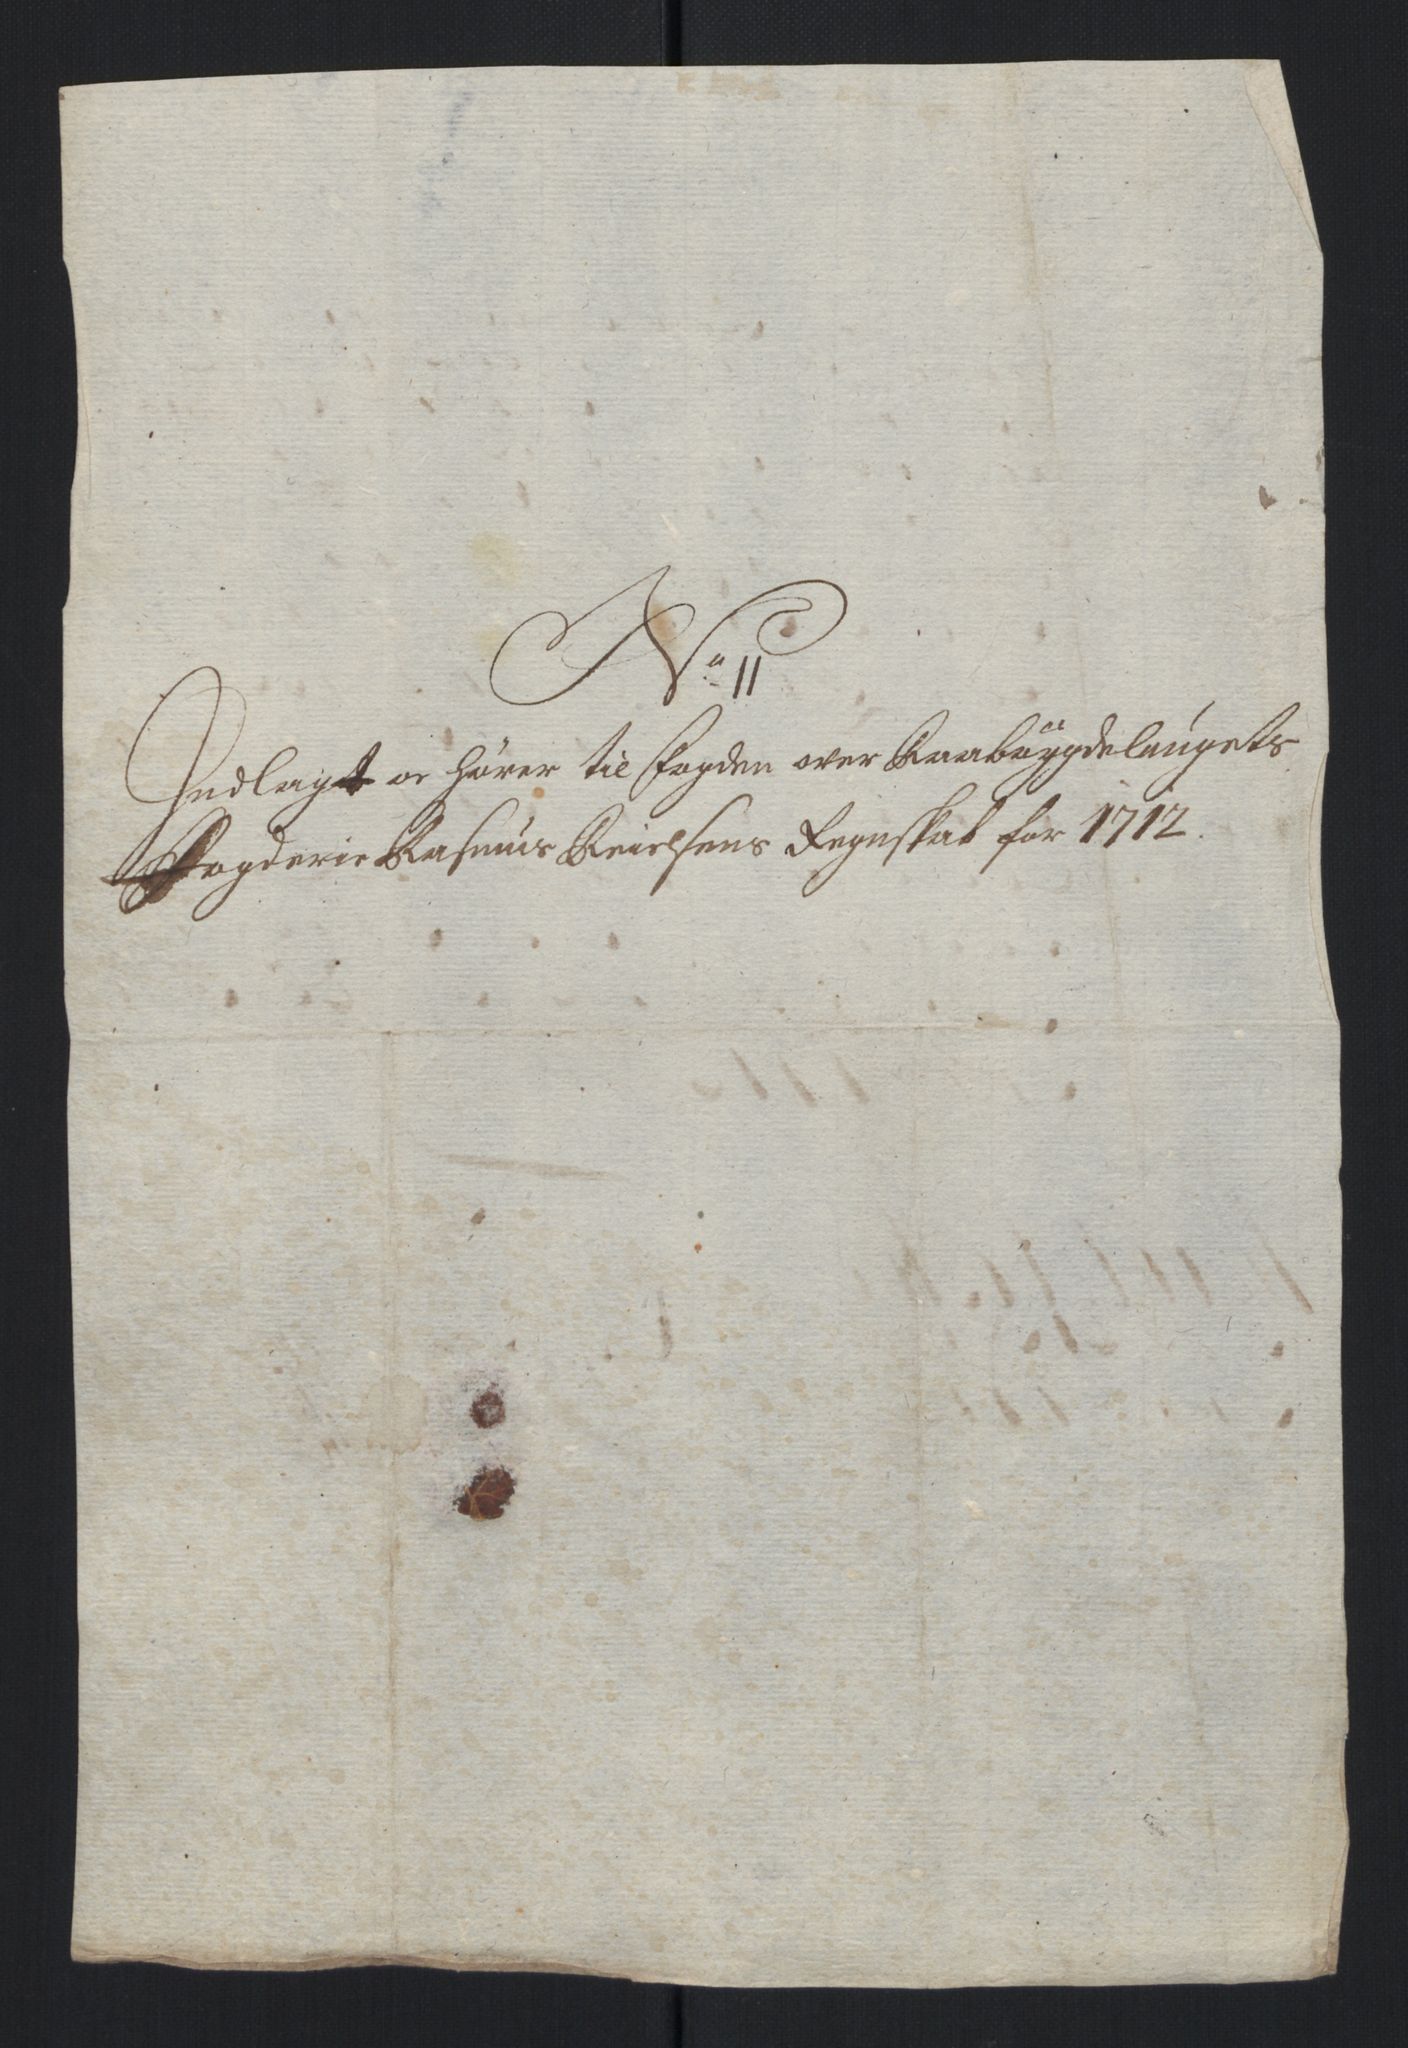 No 11
Indlagt oc hører til Fogden over Raabøygdelaugets
Fogderie Rasmus Reichsens Regnskab for 1712.